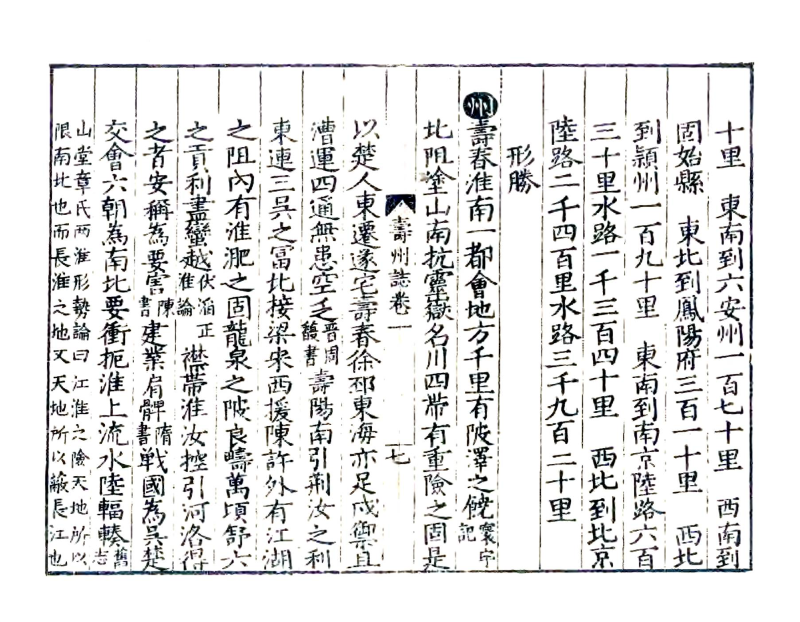 十里　東南到六安州一百七十里　西南到
固始縣　東北到鳳陽府三百一十里　西北
到潁州一百九十里　東南到南京陸路六百
三十里水路一千三百四十里　西北到北京
陸路二千四百里水路三千九百二十里
形勝
州壽春淮南一都會地方千里有陂澤之饒寰宇記
北阻塗山南抗靈嶽名川四帶有重險之固是
壽州誌卷一　七
以楚人東遷遂宅壽春徐邳東海亦足戍禦且
漕運四通無患空乏晉周馥書壽陽南引荆汝之利
東連三吳之富北接梁宋西援陳許外有江湖
之阻內有淮淝之固龍泉之陂良疇萬頃舒六
之貢利盡蠻越伏滔正淮論　襟帶淮汝控引河洛得
之者安稱為要害陳書建業肩髀隋書戰國為吳楚
交會六朝為南北要衝扼淮上流水陸輻輳舊志
山堂章氏兩淮形勢論曰江淮之險天地所以
限南北也而長淮之地又天地所以蔽長江也